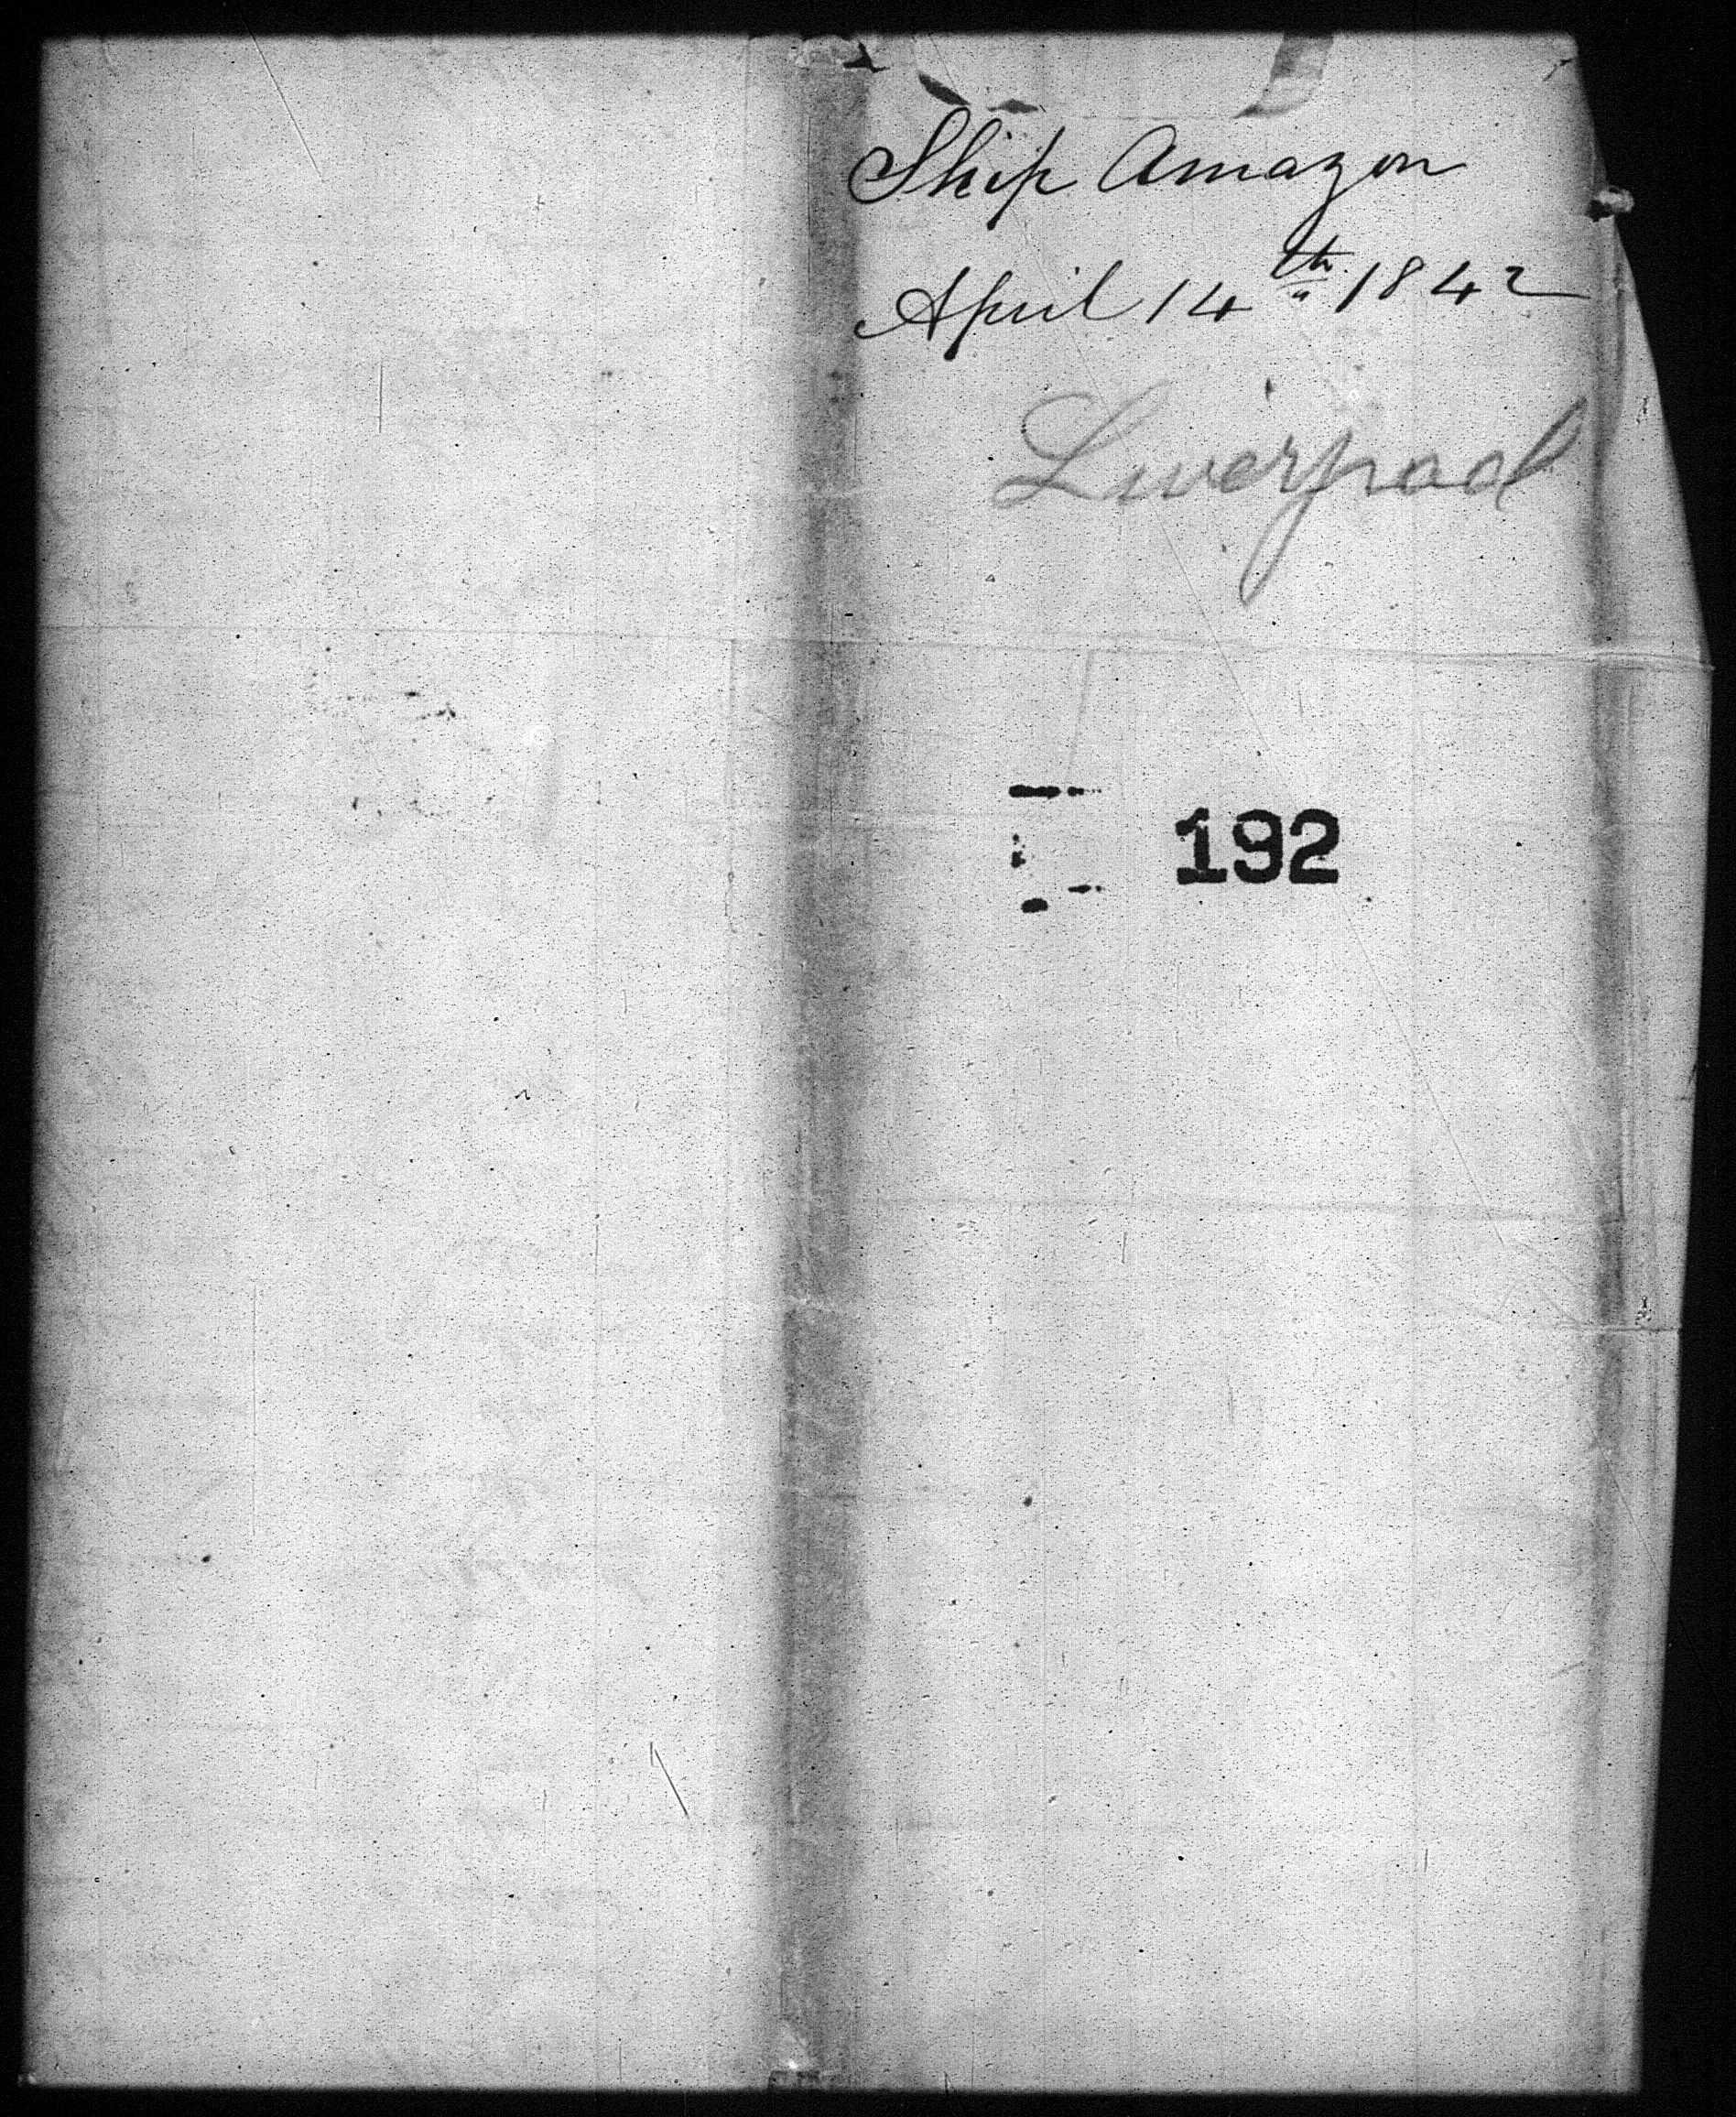 Ship Amazon
April 14th 1842
Liverpool
192